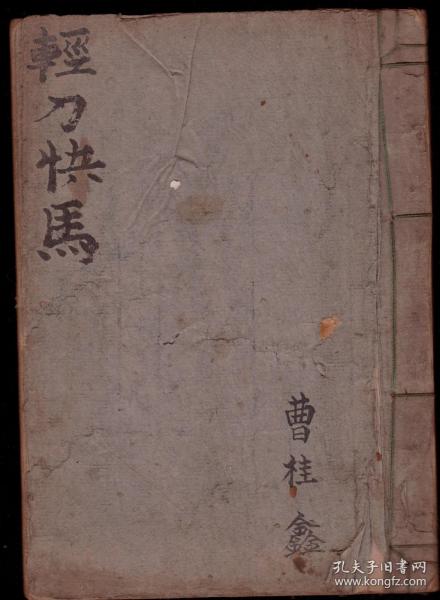 輕刀快馬
曹桂鑫
孔夫子旧书网
www.kongfz.com